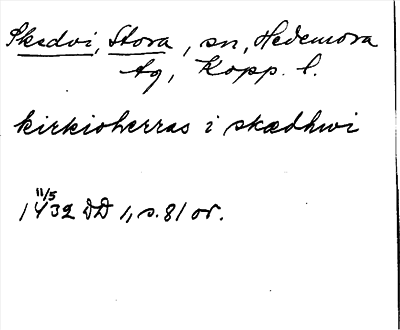 Skedvi, Stora, sn, Hedemora
tg, Kopp. l.
kirkioherras i skædhwi
11/5
1432 DD 1, s. 81 or.